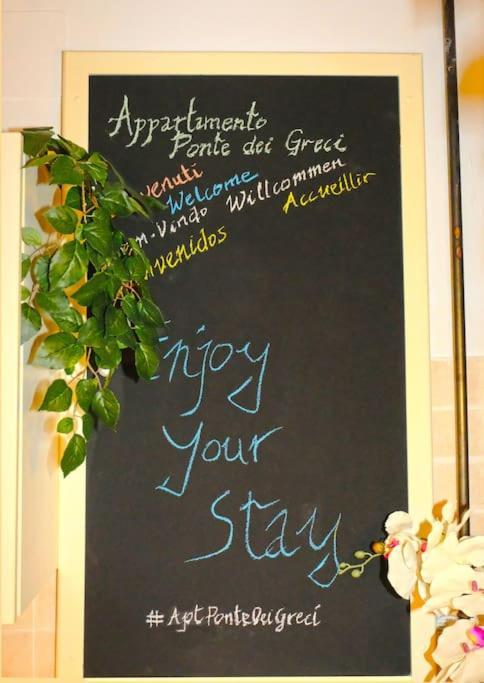 Appartamento
Ponte dei Greci
venuti
Welcome
Willcommen
Accueillir
m-Vindo
nvenidos
Enjoy
Your
Stay
#AptPonteDeiGreci